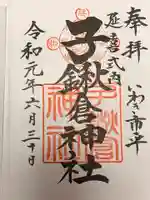 奉拝
いわき市平
延喜式内
子鍬倉神社
令和元年六月三十日